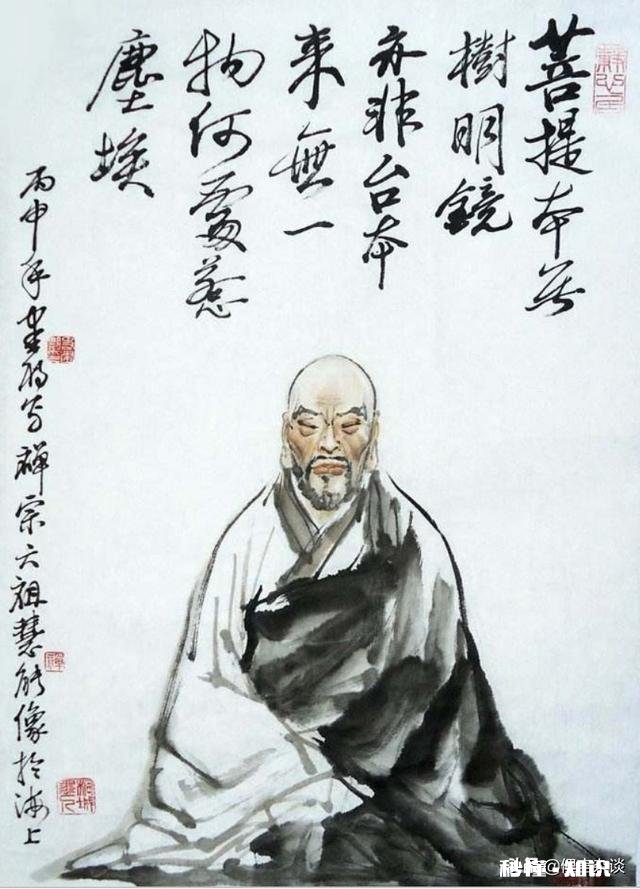 菩提本無
樹明鏡
亦非台本
来無一
物何處惹
塵埃
丙申年写禪宗六祖慧能像於海上
秒懂·知识